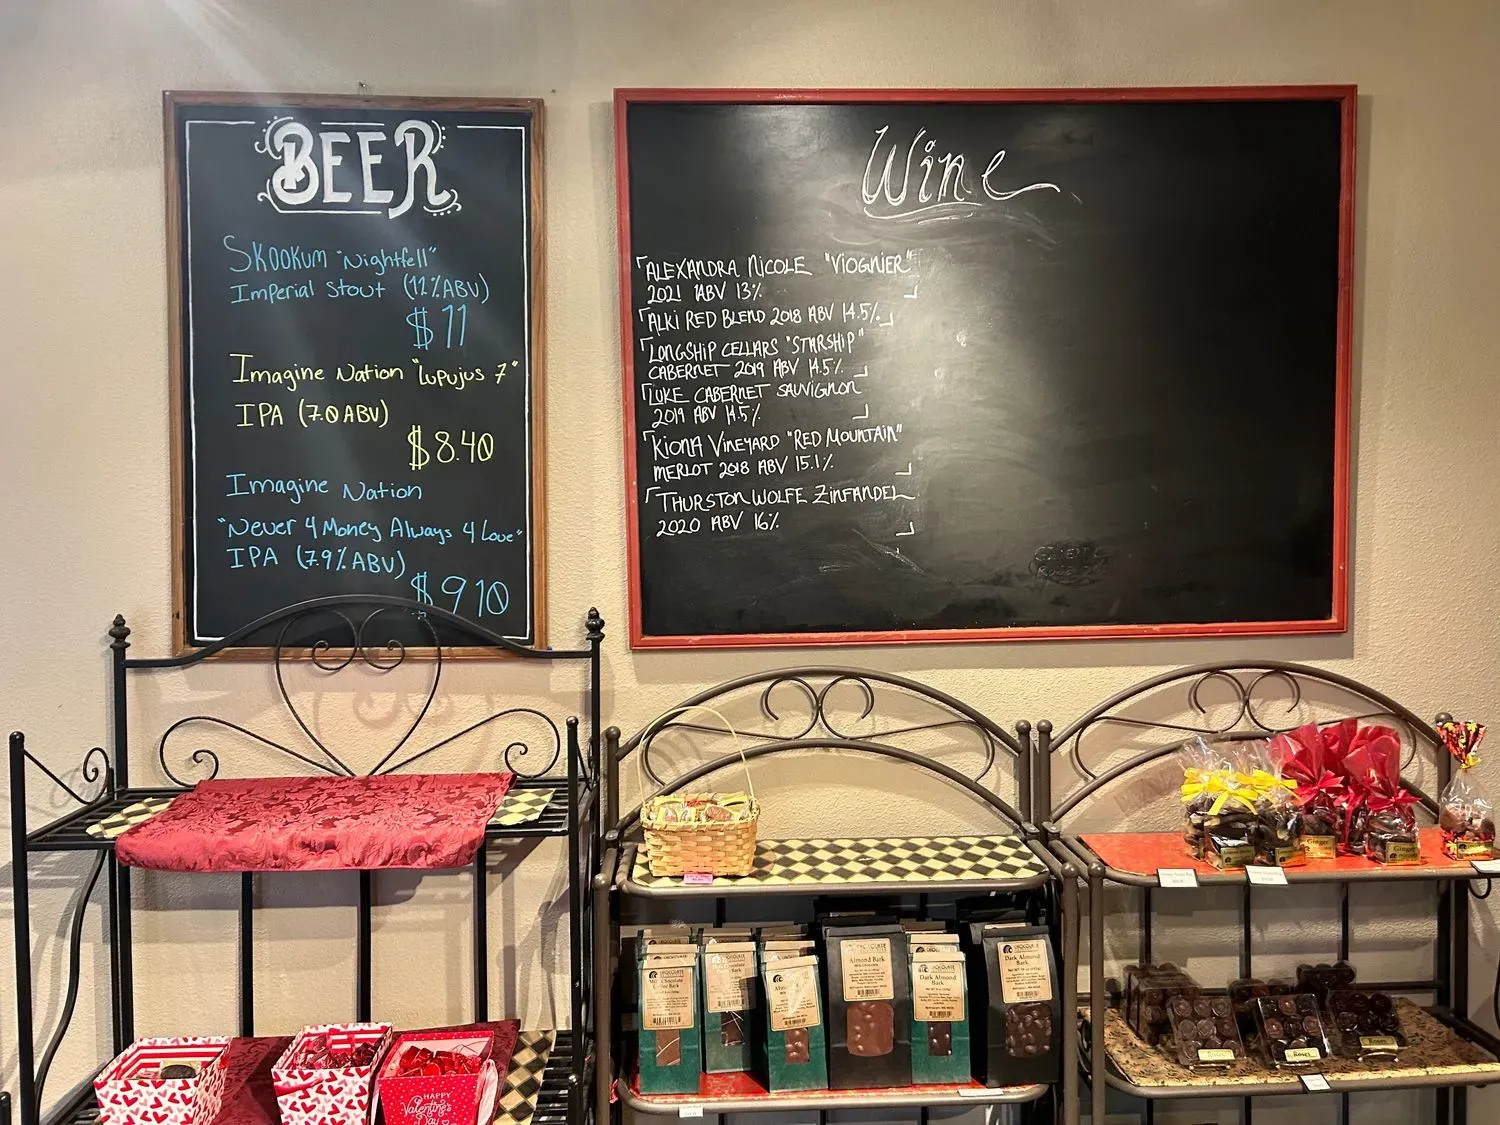 BEER
SKOOKUM "Nightfell"
Imperial Stout (11%ABV)
$11
Imagine Nation "Lupujus 7"
IPA (7.0ABV)
$8.40
Imagine Nation
"Never 4 Money Always 4 Love"
IPA (7.9%ABV)
$9.10
Wine
ALEXANDRA NICOLE "VIOGNIER"
2021 ABV 13%
ALKI RED BLEND 2018 ABV 14.5%
LONGSHIP CELLARS "STARSHIP"
CABERNET 2019 ABV 14.5%
LUKE CABERNET SAUVIGNON
2019 ABV 14.5%
KIONA VINEYARD "RED MOUNTAIN"
MERLOT 2018 ABV 15.1%
THURSTON WOLFE ZINFANDEL
2020 ABV 16%
Ginger
Ginger
CHOCOLATE
Bark
Almond Bark
CHOCOLATE
Dark Almond
Bark
CHOCOLATE
Dark Almond
Bark
Roses
Roses
Roses
HAPPY
Valentine's
Day